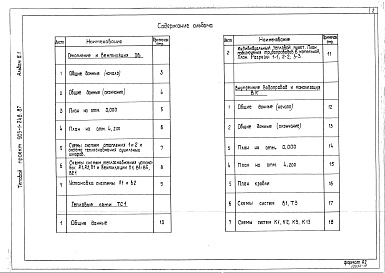 Содержание альбома
Альбом 6.1
Типовой проект 903-1-248.87
Лист
Наименование
Примечание стр.
Отопление и вентиляция ОВ
1 Общие данные (начало) 3
2 Общие данные (окончание) 4
3 План на отм. 0,000 5
4 План на отм. 4,200 6
5 Схемы систем отопления 1 и 2 и система теплоснабжения 7
6 Схемы систем теплоснабжения установок 8
7 Установка системы П1 и В2 9
Тепловые сети ТС1
1 Общие данные 10
Лист
Наименование
Примечание стр.
2 Индивидуальный тепловой пункт. План 11
План. Разрезы 1-1, 2-2, 3-3
Внутренние водопровод и канализация
ВК
1 Общие данные (начало) 12
2 Общие данные (окончание) 13
3 План на отм. 0,000 14
4 План на отм. 4,200 15
5 План кровли 16
6 Схемы систем В1, Т3 17
7 Схемы систем К1, К2, К3, К13 18
формат А2